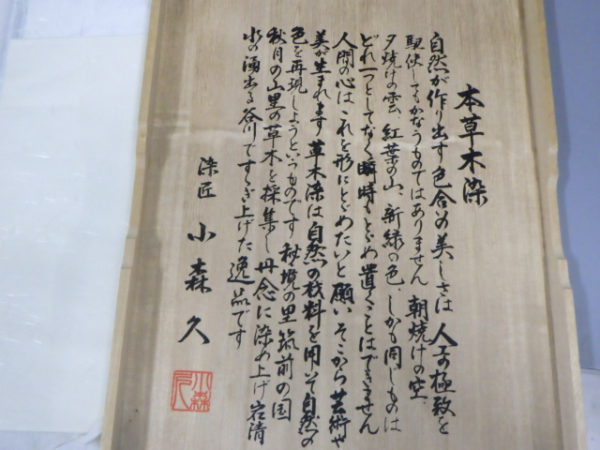 本草木染
自然が作り出す色合の美しさは、人工の極致を
駆使してもかなうものではありません 朝焼けの空、
夕焼けの雲、紅葉の山、新緑の色、しかも同じものは
どれ一つとしてなく瞬時もとどめ置くことはできません
人間の心は、これを形にとどめたいと願いそこから芸術や
美が生まれます 草木染は自然の材料を用いて自然の
色を再現しようというものです 秘境の里筑前の国
秋月の山里の草木を採集し丹念に染め上げ岩清
水の湧出る谷川ですすぎ上げた逸品です
染匠 小森久
小森久